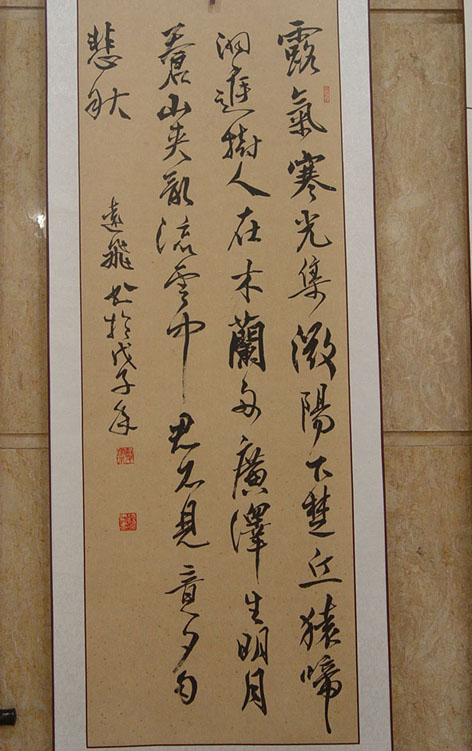 露氣寒光集微陽下楚丘猿啼
洞庭樹人在木蘭舟廣澤生明月
蒼山夾亂流雲中君不見竟夕自
悲秋
飛書於戊子年